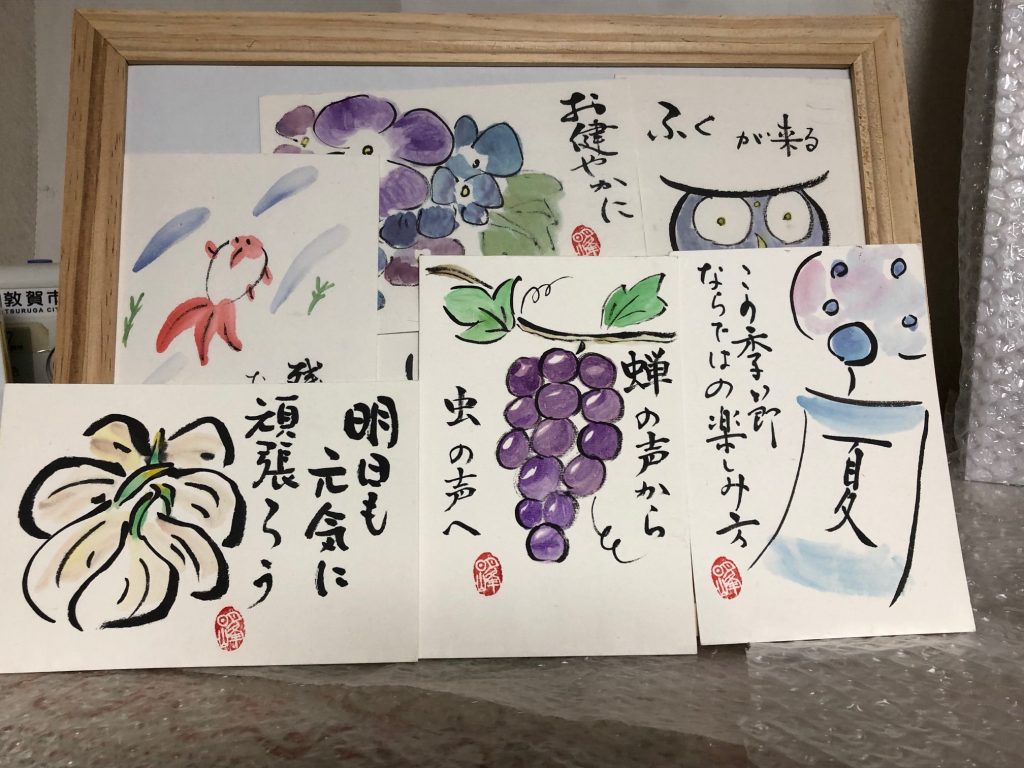 お健やかに
ふく
が来る
敦賀市
TSURUGA CI
残
明日も
元気に
頑張ろう
蝉の声から
虫の声へ
この季節
ならではの楽しみ方
夏